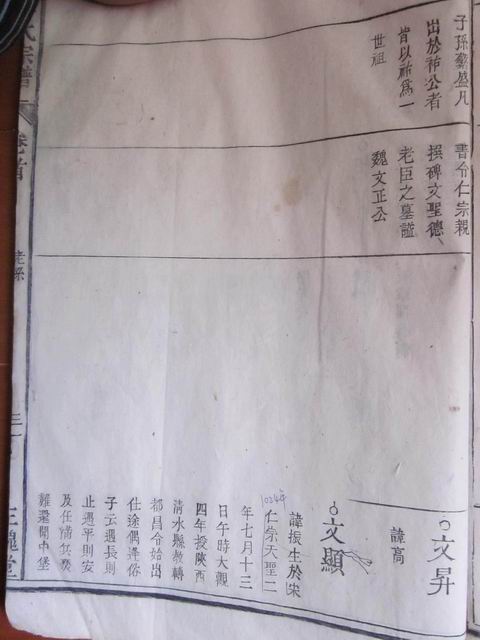 子孫繁盛凡
出於祐公者
皆以祐為一
世祖
書令仁宗親
撰碑文聖德
老臣之墓諡
魏文正公
文昇
諱高
文顯
諱振生於宋
1024年
仁宗天聖二
年七月十三
日午時大觀
四年授陝西
清水縣教轉
都昌令始出
仕途偶逢俗
子云遇長則
止遇平則安
及任滿
難還閒中堡
氏宗譜
卷之首
三槐堂